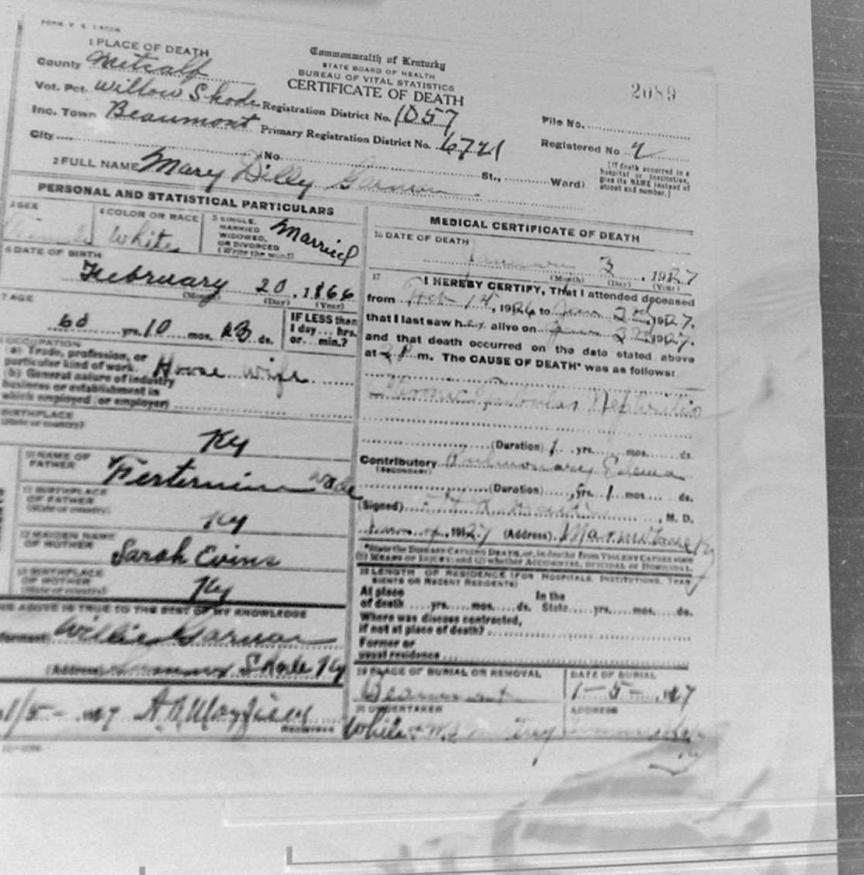 1 PLACE OF DEATH
County Metcalf
Commonwealth of Kentucky
STATE BOARD OF HEALTH
BUREAU OF VITAL STATISTICS
CERTIFICATE OF DEATH
2089
Vot. Pct. Willow Shade Registration District No. 1057
File No.
Inc. Town Beaumont Primary Registration District No. 6721
Registered No
City No. St., Ward)
[If death occurred in a hospital or institution, give its NAME instead of street and number.]
2 FULL NAME Mary Dilly
PERSONAL AND STATISTICAL PARTICULARS
3 SEX
4 COLOR OR RACE White
5 SINGLE, MARRIED WIDOWED, OR DIVORCED (Write the word) Married
6 DATE OF BIRTH
February 20, 1866
(Month) (Day) (Year)
7 AGE
60 yrs. 10 mos. ds.
IF LESS than 1 day... hrs. or... min.?
8 OCCUPATION
(a) Trade, profession, or particular kind of work House wife
(b) General nature of industry business or establishment in which employed (or employer)
BIRTHPLACE
(State or country) Ky
10 NAME OF FATHER Wade
11 BIRTHPLACE OF FATHER
(State or country) Ky
12 MAIDEN NAME OF MOTHER Sarah Evins
13 BIRTHPLACE OF MOTHER
(State or country) Ky
ABOVE IS TRUE TO THE BEST OF MY KNOWLEDGE
Willie Garman
(Address) Shade Ky
1/5- 27
MEDICAL CERTIFICATE OF DEATH
16 DATE OF DEATH
January 3, 1927
(Month) (Day) (Year)
17 I HEREBY CERTIFY, That I attended deceased
from Feb 14, 1926 to Jan 2nd, 1927.
that I last saw her alive on Jan 1927.
and that death occurred on the date stated above
at m. The CAUSE OF DEATH* was as follows:
Nephritis
(Duration) 1 yrs. mos. ds.
Contributory Pulmonary Edema
(SECONDARY)
(Duration) yrs. 1 mos. ds.
(Signed) M. D.
1927 (Address)
*State the DISEASE CAUSING DEATH, or, in deaths from VIOLENT CAUSES state (1) MEANS OF INJURY; and (2) whether ACCIDENTAL, SUICIDAL or HOMICIDAL.
18 LENGTH OF RESIDENCE (FOR HOSPITALS, INSTITUTIONS, TRANSIENTS OR RECENT RESIDENTS)
At place of death yrs. mos. ds. In the State yrs. mos. ds.
Where was disease contracted,
if not at place of death?
Former or
usual residence
19 PLACE OF BURIAL OR REMOVAL
Beaumont
DATE OF BURIAL
1-5- 27
20 UNDERTAKER
ADDRESS